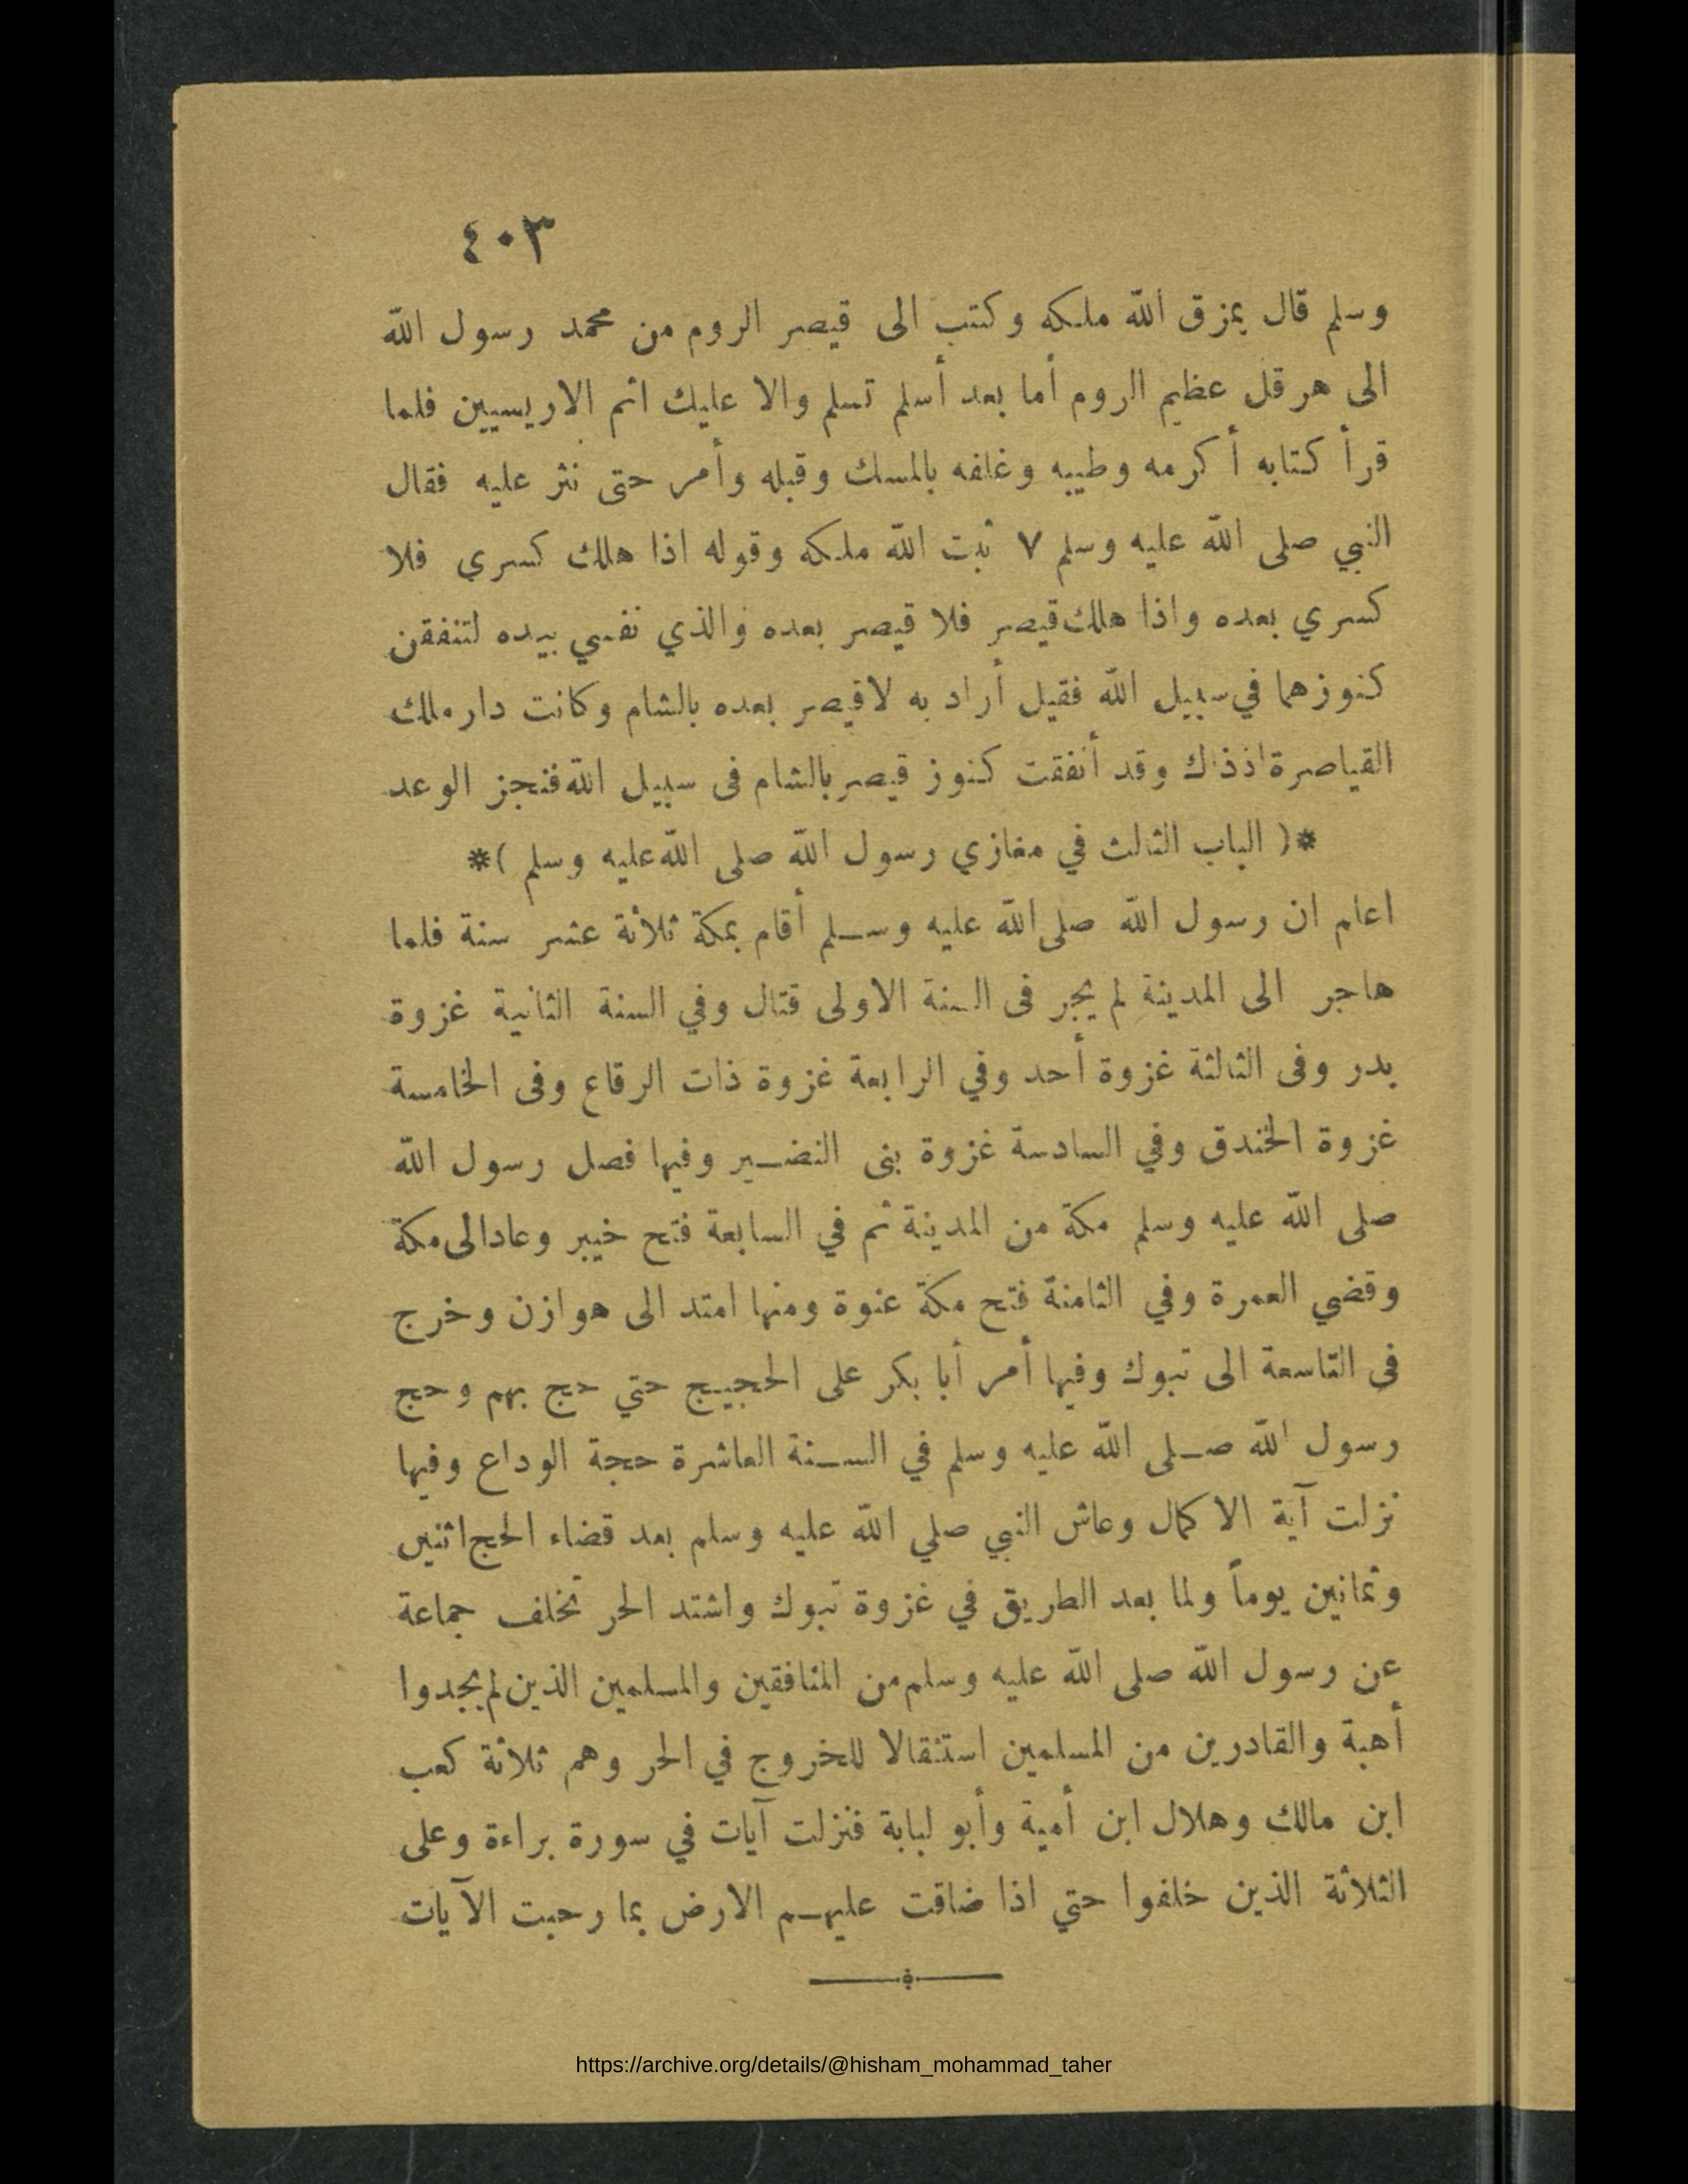 ٤٠٣
وسلم قال يمزق الله ملكه وكتب الى قيصر الروم من محمد رسول الله
الى هرقل عظيم الروم أما بعد أسلم تسلم والا عليك اثم الاريسيين فلما
قرأ كتابه أكرمه وطيبه وغلفه بالمسك وقبله وأمر حتى نثر عليه فقال
النبي صلى الله عليه وسلم ٧ ثبت الله ملكه وقوله اذا هلك كسرى فلا
كسري بعده واذا هلك قيصر فلا قيصر بعده والذي نفسي بيده لتنفقن
كنوزهما في سبيل الله فقيل أراد به لاقيصر بعده بالشام وكانت دار ملك
القياصرة اذذاك وقد أنفقت كنوز قيصر بالشام فى سبيل الله فنجز الوعد
*( الباب الثالث في مغازي رسول الله صلى الله عليه وسلم )*
اعلم ان رسول الله صلى الله عليه وسلم أقام بمكة ثلاثة عشر سنة فلما
هاجر الى المدينة لم يجر فى السنة الاولى قتال وفي السنة الثانية غزوة
بدر وفى الثالثة غزوة أحد وفي الرابعة غزوة ذات الرقاع وفى الخامسة
غزوة الخندق وفي السادسة غزوة بنى النضير وفيها فصل رسول الله
صلى الله عليه وسلم مكة من المدينة ثم في السابعة فتح خيبر وعاد الى مكة
وقضي العمرة وفي الثامنة فتح مكة عنوة ومنها امتد الى هوازن وخرج
فى التاسعة الى تبوك وفيها أمر أبا بكر على الحجيج حتي حج بهم وحج
رسول الله صلى الله عليه وسلم في السنة العاشرة حجة الوداع وفيها
نزلت آية الاكمال وعاش النبي صلي الله عليه وسلم بعد قضاء الحج اثنين
وثمانين يوماً ولما بعد الطريق في غزوة تبوك واشتد الحر تخلف جماعة
عن رسول الله صلى الله عليه وسلم من المنافقين والمسلمين الذين لم يجدوا
أهبة والقادرين من المسلمين استثقالا للخروج في الحر وهم ثلاثة كعب
ابن مالك وهلال ابن أمية وأبو لبابة فنزلت آيات في سورة براءة وعلى
الثلاثة الذين خلفوا حتي اذا ضاقت عليهم الارض بما رحبت الآيات
https://archive.org/details/@hisham_mohammad_taher